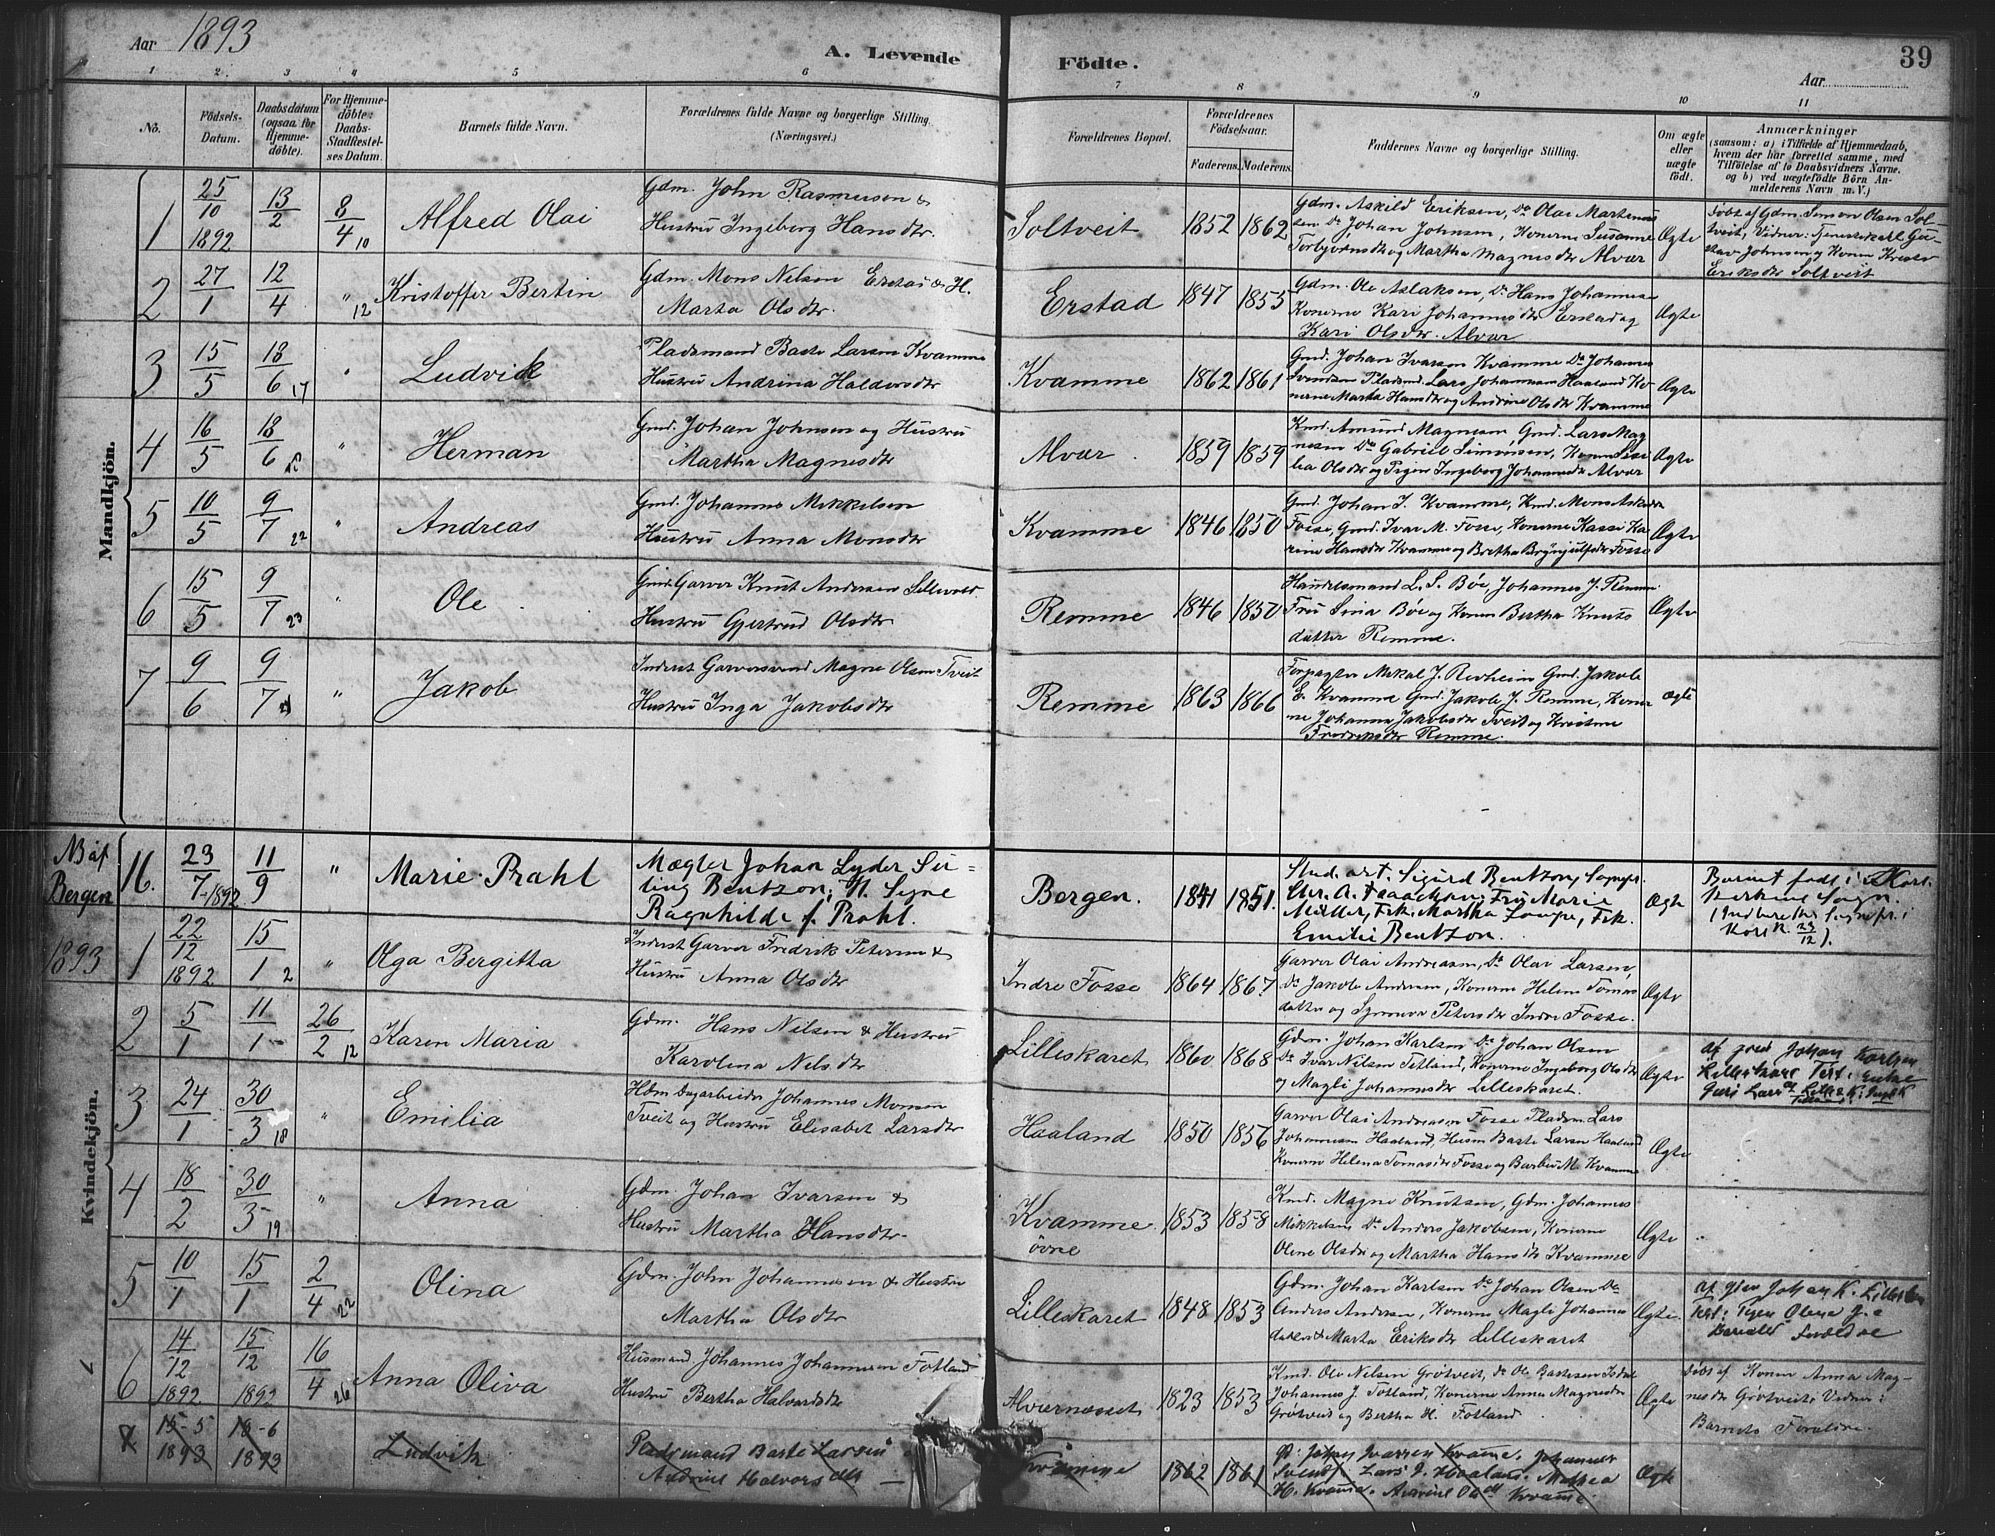 Aar 1893
A. Levende
Födte.
39
Aar
1 2 3 4 5 6 7 8 9 10 11
No.
Födsels-
Datum.
Daabsdatum
(ogsaa for
Hjemme-
döbte).
For Hjemme-
döbte:
Daabs-
Stadfæstel-
ses Datum.
Barnets fulde Navn.
Forældrenes fulde Navne og borgerlige Stilling
(Næringsvei.)
Forældrenes Bopæl.
Forældrenes
Födselsaar.
Faderens. Moderens.
Faddernes Navne og borgerlige Stilling.
Om ægte
eller
uægte
födt.
Anmærkninger
(saasom: a) i Tilfælde af Hjemmedaab,
hvem der har forrettet samme, med
Tilföielse af to Daabsvidners Navne.
og b) ved uægtefödte Börn An-
melderens Navn m. V.)
Mandkjön.
1 25/10 1892 13/2 8/4 10 Alfred Olai
Gdm. John Rasmussen &
Hustru Ingeborg Hansdtr.
Soltveit 1852 1862
Gdm. Askild Eriksen, Do Olai Martinus
sen Do Johan Johnsen, Konerne Susanne
Torbjornsdtr og Martha Magnesdtr Alvær
Ægte
Döbt af Gdm. Simon Olsen Sol-
tveit, Vidner: Tjenestekarl Gu-
stav Johnsen og Konen
Eriksdtr Soltveit
2 27/1 12/4 " 12 Kristoffer Bertin
Gdm. Mons Nilsen Erstad & H.
Marta Olsdtr.
Erstad 1847 1855
Gdm. Ole Aslaksen, Do Hans Johannes
Konerne Kari Johannesdtr Erstad og
Kari Olsdtr. Alvær
Ægte
3 15/5 18/6 17 " Ludvik
Pladsmand Baste Larsen Kvamme
Hustru Andrina Haldorsdtr
Kvamme 1862 1861
Gmd. Johan Ivarsen Kvamme Do Johannes
Svendsen Pladsmd. Lars Johannesen Haaland Ko-
nerne Marta Hansdtr og Andrine Olsdtr Kvamme
Ægte
4 16/5 18/6 " Herman
Gmd. Johan Johnsen og Hustru
Martha Magnesdtr
Alvær 1859 1859
Kmd. Amund Magnesen Gmd. Lars Mag-
nesen Do Gabriel Simonsen, Konen
Olsdtr og Pigen Ingeborg Johannesdtr Alvær
Ægte
5 10/5 9/7 22 " Andreas
Gmd. Johannes Mikkelsen
Hustru Anna Monsdtr
Kvamme 1846 1850
Gmd. Johan I. Kvamme, Kmd. Mons
Fosse, Gmd. Ivar M. Fosse, Konerne Ka-
rine Hansdtr Kvamme og Bretha Brynjulfsdtr Fosse
Ægte
6 15/5 9/7 23 " Ole
Gmd. Garver Knut Andersen
Hustru Gjertrud Olsdtr
Remme 1846 1850
Handelsmand L. S. Böe, Johannes J. Remme
Fru Sina Böe og Konen Bertha Knuts
datter Remme.
Ægte
7 9/6 9/7 " Jakob
Inderst Garversvend Magne Olsen Tveit
Hustru Inga Jakobsdtr
Remme 1863 1866
Forpagter Mikal J. Revheim Gmd. Jakob
E. Kvamme Gmd. Jakob J. Remme, Koner
ne Johanna Jakobsdtr Tveit og Kristine
Fredriksdtr Remme.
ægte
NB af
Bergen
16. 23/7-1892 11/9 " Marie Prahl
Mægler Johan Lyder Su-
ling Bentzon; H. Signe
Ragnhilde f. Prahl.
Bergen. 1841 1851.
Stud. art. Sigurd Bentzon, Sogepr.
Chr. A. Isaachsen, Fru Marie
Müller, Frk. Martha, Frk.
Emilie Bentzon.
Ægte
Barnet født i Kors
kirkens Sogn.
(Indberettet Sognepr. i
Korsk. 23/12).
Kvindekjön.
1893
1 22/12 1892 15/1 2 " Olga Bergitta
Inderst Garver Fredrik Petersen &
Hustru Anna Olsdtr
Indre Fosse 1864 1867
Garver Olai Andreasen, Do Olai Larsen,
Do Jakob Andersen, Konerne Helene Tomas
datter og Synneve Petersdtr Indre Fosse.
Ægte
2 5/1 11/1 26/2 12 Karen Maria
Gdm. Hans Nilsen & Hustru
Karolina Nilsdtr
Lilleskaret 1860 1868
Gdm. Johan Karlsen Do Johan Olsen
Do Ivar Nilsen Tetland, Konerne Ingeborg Olsdtr
og Magli Johannesdtr Lilleskaret.
Ægte
af Johan Karlsen
Lilleskare Test. Enke
3 24/1 30/3 18 " Emilia
Hdm Dagarbeider Johannes Monsen
Tveit og Hustru Elisabet Larsdtr
Haaland 1850 1856
Garver Olai Andreasen Fosse Pladsm Lars
Johannesen Haaland, Husm Baste Larsen Haaland
Konerne Helena Tomasdtr Fosse og Barbru M. Kvamme
Ægte
4 18/2 30/3 19 " Anna
Gdm. Johan Ivarsen &
Hustru Martha Hansdtr.
Kvamme
övne 1853 1858
Kmd. Magne Knutsen, Gdm. Johannes
Mikkelsen, Do Anders Jakobsen, Konerne
Olene Olsdtr og Martha Hansdtr Kvamme
Ægte
5 10/1 15/1 2/4 22 Olina
Gdm. John Johannesen & Hustru
Martha Olsdtr
Lilleskaret 1848 1853
Gdm. Johan Karlsen Do Johan Olsen Do
Anders Andersen, Konerne Magli Johannes
datter & Marta Eriksdtr Lilleskaret
Ægte
6 14/12 1892 15/12 1892 16/4 26 Anna Oliva
Husmand Johannes Johannesen Fotland
Hustru Bertha Halvardsdtr
Alvernesset 1823 1853
Kmd. Ole Nilsen Grötveit, Do Ole
Johannes J. Fotland, Konerne Anna Magnesdtr
Grötveit og Bertha H. Fotland.
Ægte
Döbt af Konen Anna Mag-
nesdtr Grötveit: Vidner:
Barnets Forældre.
7 15-5 1893 18-6 1893 Ludvik
Pladsmand Baste Larsen
Andrine Halvorsdtr
Kvamme 1862 1861
Johan Ivarsen Kvamme. Johannes
Svends. Lars J. Haaland. Martha
H. Kvamme. Andrine Olsdtr Kvamme
Ægte